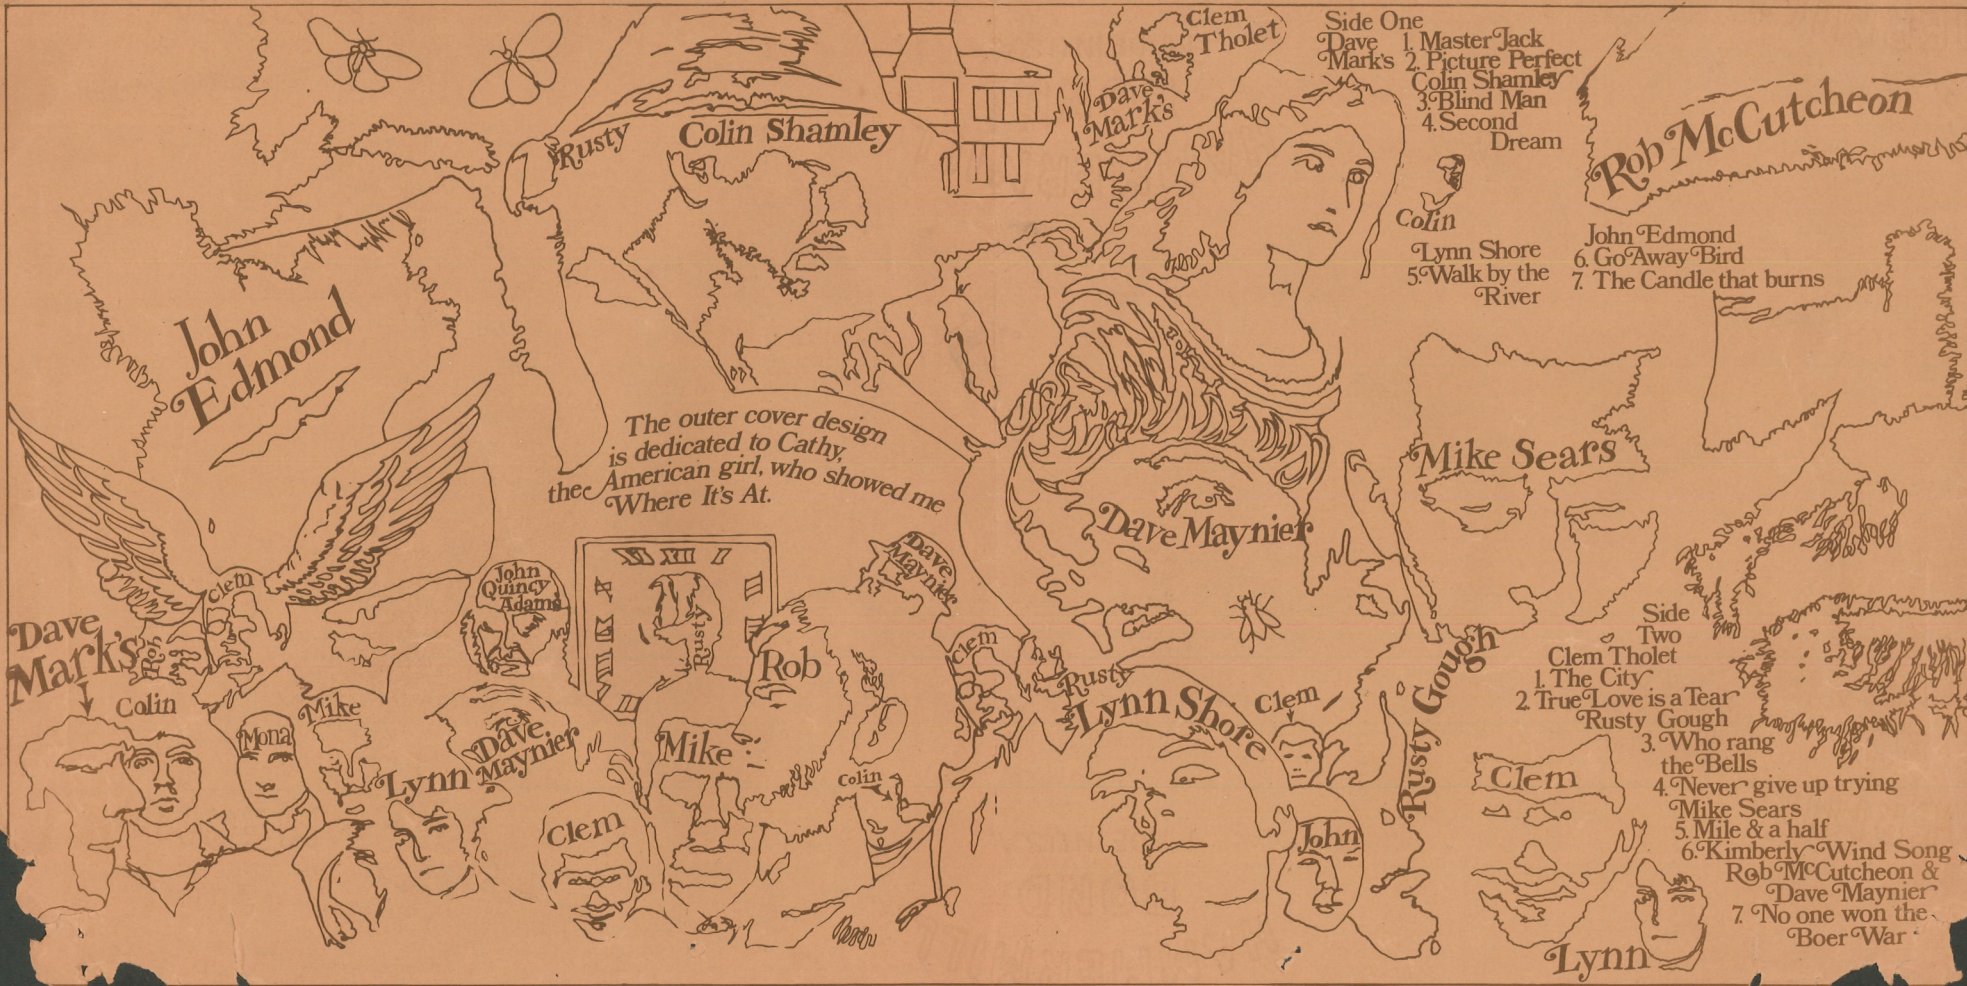 Clem
Tholet
Dave
Mark's
Side One
Dave 1. Master Jack
Mark's 2. Picture Perfect
Colin Shamley
3. Blind Man
4. Second
Dream
Rob McCutcheon
Rusty
Colin Shamley
Colin
Lynn Shore
5. Walk by the
River
John Edmond
6. Go Away Bird
7. The Candle that burns
John
Edmond
The outer cover design
is dedicated to Cathy,
the American girl, who showed me
Where It's At.
Mike Sears
Dave Maynier
XI XII I
II
X
IX
VIII
Rusty
John
Quincy
Adams
Dave
Maynier
Clem
Dave
Mark's
Rob
Colin
Mona
Mike
Lynn
Dave
Maynier
Clem
Mike
Rob
Colin
Clem
Rusty
Lynn Shore
Clem
John
Rusty Gough
Clem
Lynn
Side
Two
Clem Tholet
1. The City
2. True Love is a Tear
Rusty Gough
3. Who rang
the Bells
4. Never give up trying
Mike Sears
5. Mile & a half
6. Kimberly Wind Song
Rob McCutcheon &
Dave Maynier
7. No one won the
Boer War